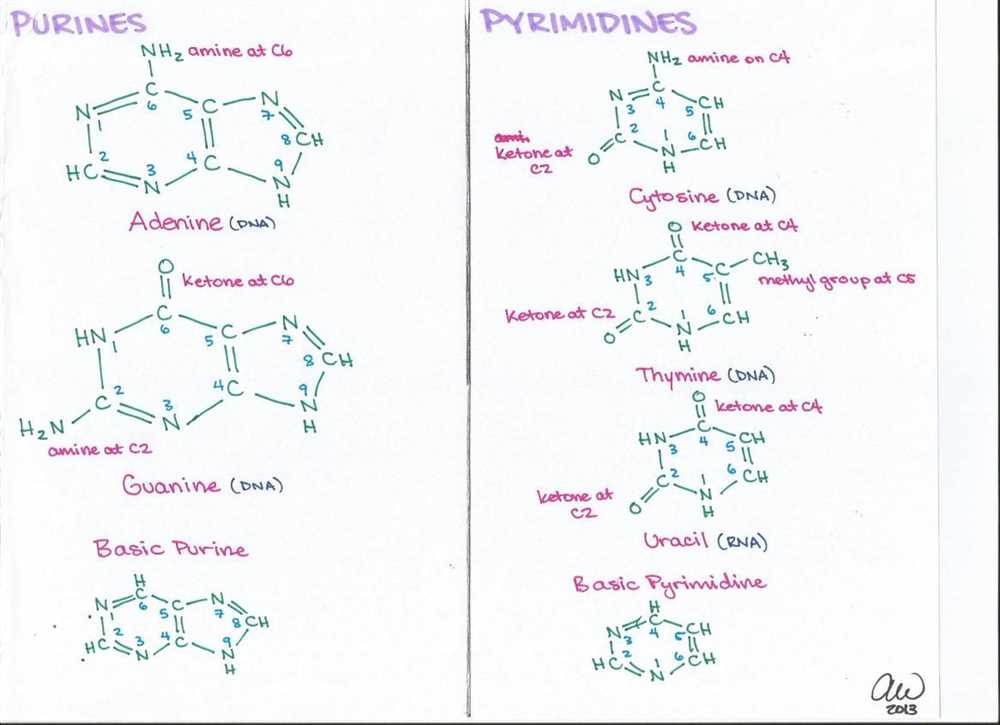 PURINES
NH₂ amine at C6
C
6
N
1
5
C
N
7
8
CH
2
HC
3
N
4
C
9
N
H
Adenine (DNA)
O
ketone at C6
C
6
HN
1
5
C
N
7
8
CH
2
C
3
N
4
C
9
N
H
H₂N
amine at C2
Guanine (DNA)
Basic Purine
H
C
6
N
1
5
C
N
7
8
CH
2
HC
3
N
4
C
9
N
H
PYRIMIDINES
NH₂ amine on C4
N
3
C
4
5
CH
2
C
1
N
H
6
CH
O
ketone at
C2
Cytosine (DNA)
O
ketone at C4
C
4
HN
3
5
C
CH₃
methyl group at C5
ketone at C2
2
C
O
1
N
H
6
CH
Thymine (DNA)
O
ketone at C4
C
4
HN
3
5
CH
2
C
O
1
N
H
6
CH
ketone at
C2
Uracil (RNA)
Basic Pyrimidine
H
C
4
N
3
5
CH
2
HC
1
N
6
CH
aw
2013